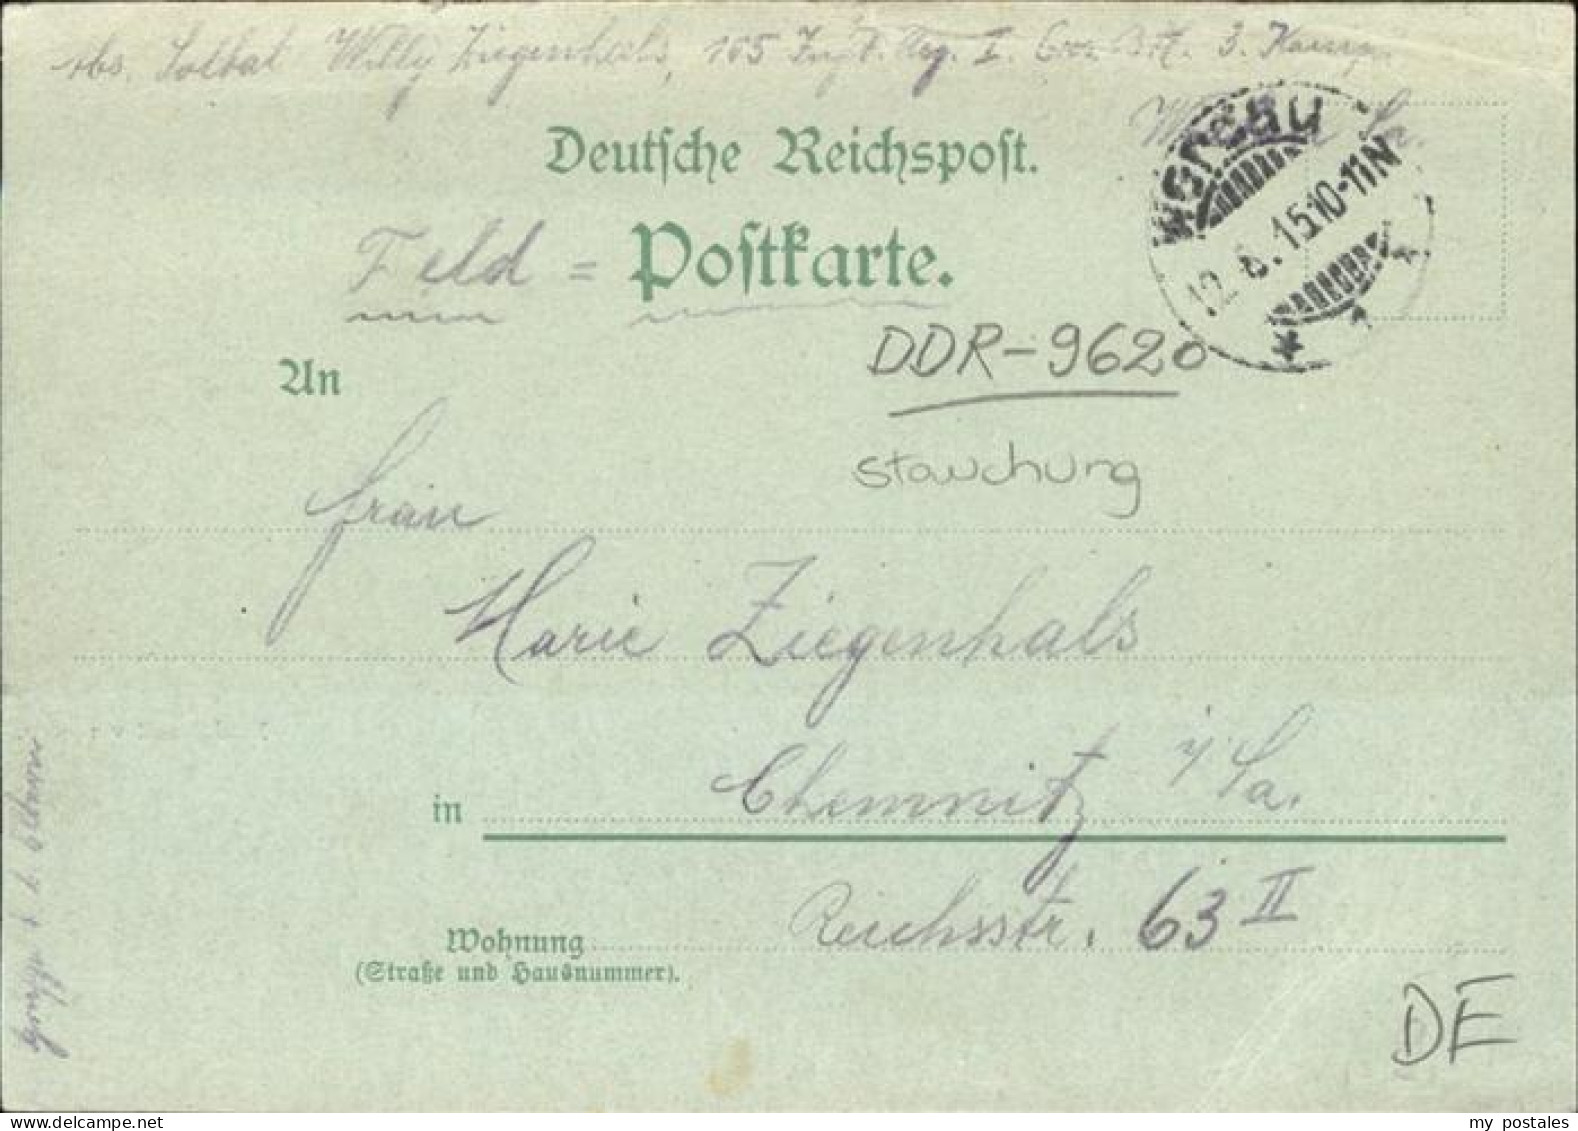 Abs. Soldat Willy Ziegenhals, 3. Komp.
Werdau
12.8.15 10-11N
* 1 *
Deutsche Reichspost.
Feld = Postkarte.
DDR-9620
Stauchung
An
Frau
Marie Ziegenhals
in Chemnitz i/Sa.
Wohnung Reichsstr. 63 II
(Straße und Hausnummer).
DE
my postales